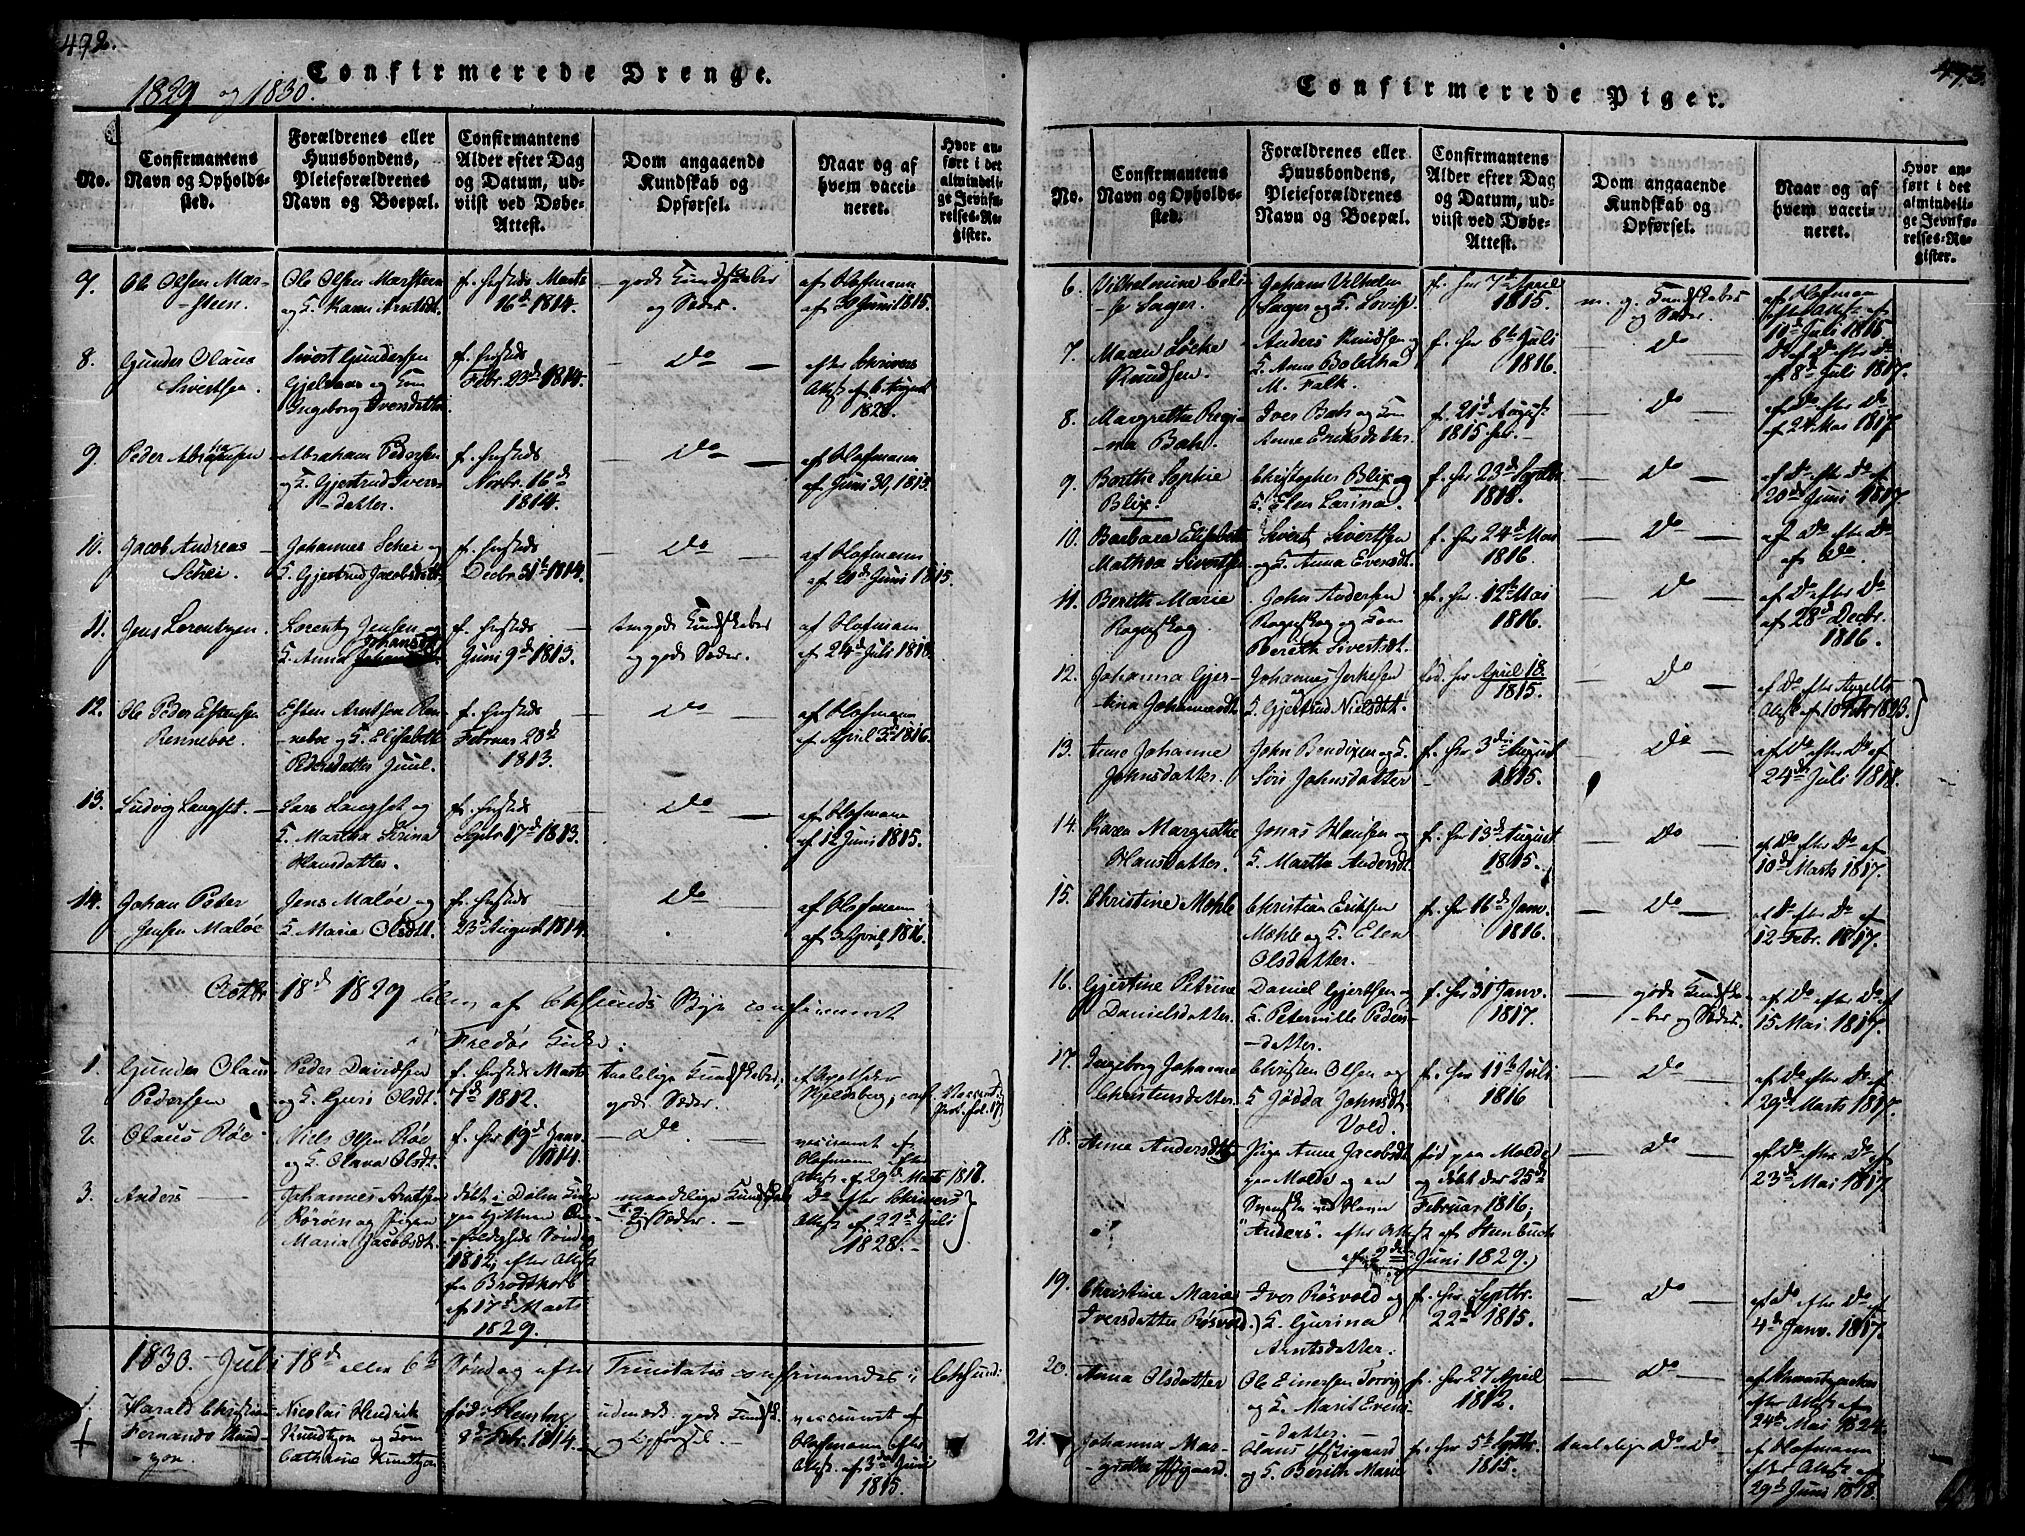 492.
Confirmerede Drenge.
1829 og 1830.
No.
Confirmantens
Navn og Opholds-
sted.
Forældrenes eller
Huusbondens,
Pleieforældrenes
Navn og Boepæl.
Confirmantens
Alder efter Dag
og Datum, ud-
viist ved Døbe-
Attest.
Dom angaaende
Kundskab og
Opførsel.
Naar og af
hvem vacci-
neret.
Hvor an-
ført i det
almindeli-
ge Jevnfø-
relses-Re-
gister.
Ole Olsen Mar-
-steen
Ole Olsen Marsteen
og K. Karen Arntsdt.
f. hersteds Marts
16d 1814.
gode Kundskaber
og Sæder.
af Hofmann
af 30 Juni 1815.
8.
Gunder Olaus
Sivertsen
Sivert Gundersen
og Kone
Ingeborg Iversdatter
f. hersteds
Febr. 23d 1814.
Do
efter Schrivers
Attest af 6 August
1828.
9.
Peder Abrahamsen
Abraham Pedersen
og K. Gjertrud Ivers
-datter.
f. hersteds
Novbr. 16d
1814.
Do
af Hofmann
af Juni 30, 1815.
10.
Jacob Andreas
Schei.
Johannes Schei og
K. Gjertrud Jacobsdt.
f. hersteds
Decbr. 31te 1814.
Do
af Hofmann
af 20d Juni 1815.
11.
Jens Lorentzen.
Lorentz Jensen og
K. Anna Johansdt.
f. hersteds
Juni 9d 1813.
temgode Kundskaber
og gode Sæder.
af Hofmann
af 24d Juli 1818.
12.
Ole Peder Estensen
Renneboe.
Esten Arntsen Ren-
neboe og K. Elisabeth
Pedersdatter Juul.
f. hersteds
Februar 28d
1813.
Do
af Hofmann
af April 3d 1816.
13.
Ludvig Langset.
Lars Langset og
K. Martha Serina
Hansdatter.
f. hersteds
Sptbr. 17d 1813.
Do
af Hofmann
af 12 Juni 1815.
14.
Johan Peter
Jensen Maløe
Jens Maløe og
K. Marie Olsdt.
f. hersteds
23d August 1814.
Do
af Hofmann
af 3 April 1816.
Octbr 18d 1829 blev af Chrsunds Bye confirmeret
i Fredøe Kirke:
1.
Gunder Olaus
Pedersen
Peder Davidsen
og K. Guri Olsdt.
f. hersteds Marts
7d 1812.
taalelige Kundskaber,
gode Sæder.
af
Kjeldsberg, conf. Vaccinat.
Prot. fol. 17)
2.
Olaus Røe
Niels Olsen Røe
og K. Olava Olsdt.
f. her 19d Janv.
1814.
Do.
vaccineret af
Hofmann efter
Attest af 29d Marts 1818.
3.
Anders
Johannes Arntsen
Rørøen og Pigen
Maria Jacobsdt.
døbt i Dolm Kirke
1812, efter Attest
fra Brodtkorb
af 17d Marts
1829.
maadelige Kundskab.
Sæder.
Do efter Schrivers
Attest af 22d Juli
1828.
1830. Juli 18d eller 6te Søndag efter Trinitatis confirmeredes i Chrsund:
1.
Harald Christian
Fernando Knud-
-zon.
Nicolai Hendrik
Knudtzon og Kone
Cathrine Knudtzon
født i Flensborg
8d Febr. 1814.
udmærk. gode Kundsk.
og Opførsel.
vaccineret af
Hofmann efter
Attest af 3die Juni
1815.
493.
Confirmerede Piger.
No.
Confirmantens
Navn og Opholds-
sted.
Forældrenes eller
Huusbondens,
Pleieforældrenes
Navn og Boepæl.
Confirmantens
Alder efter Dag
og Datum, ud-
viist ved Døbe-
Attest.
Dom angaaende
Kundskab og
Opførsel.
Naar og af
hvem vacci-
neret.
Hvor an-
ført i det
almindeli-
ge Jevnfø-
relses-Re-
gister.
6.
Vilhelmine Celi-
se Sager.
Johans Vilhelm
Sager og K. Lovise
f. her 7de April
1815.
m. g. Kundskaber
og Sæder.
af Hofmann
efter Attest af
19d Juli 1815
7.
Maren Løcke
Knudsen.
Anders Knudsen og
K. Anne Boletha
M. Falk.
f. her 6te Juli
1816.
Do
Do af Do efter Do
af 8de Juli 1817.
8.
Margrethe Regi-
-na Bah.
Iver Bah og Kone
Anne Eriksdatter.
f. 21d August
1815 her.
Do
af Do efter Do
af 24 Mai 1817.
9.
Berthe Sophie
Blix.
Christopher Blix og
K. Elen Larina
f. her 23d Septbr.
1818.
Do
af Do efter Do af
20de Juni 1817.
10.
Barbara Elisabeth
Mathea Sivertsen
Sivert Sivertsen
og K. Anna Eversdt.
f. her 24d Mai
1816.
Do
af Do efter Do
af Do
11.
Bereth Marie
Rogneskog.
John Andersen
Rogneskog og Kone
Bereth Sivertsdt.
f. her 12te Mai
1816.
Do
af Do efter Do
af 28d Decbr.
1816.
12.
Johanna Gjer-
-tina Johannesdt.
Johannes
og K. Gjertrud Nielsdt.
fød. her April 18.
1815.
Do
af Do efter Angells
Attest af 10 Febr 1823.
13.
Anne Johanne
Johnsdatter.
John Bendixen og K.
Siri Johnsdatter
f. her 3die August
1815.
Do
af Do efter Do af
24de Juli 1818.
14.
Karen Margrethe
Hansdatter.
Jonas Hansen og
K. Martha Andersdt.
f. her 13d August
1815.
Do
af Do efter Do af
10d Marts 1817.
15.
Christine Mohle
Christian Eriksen
Mohle og K. Elen
Olsdatter.
f. her 16d Janv.
1816.
Do
af Do efter Do af
12 Febr. 1817.
16.
Gjertine Petrine
Danielsdatter.
Daniel Gjertsen og
K. Peternille Peders-
-datter.
f. her 31 Janv.
1817.
gode Kundska-
-ber og Sæder.
af Do efter Do af
15 Mai 1817.
17.
Ingeborg Johanne
Christensdatter.
Christen Olsen og
K Jødda Johnsdt.
Vold.
f. her 11te Juli
1816
Do
af Do efter Do af
29d Marts 1817.
18.
Anne Andersdt.
Pige Anne Jacobsdt.
paa Molde og en
Svenske ved Navn
"Anders". efter Attest af Steenbuch
af 2den Juni 1829.)
fød paa Molde
og døbt der 25de
Februar 1816,
Do
af Do efter Do. af
23de Mai 1817.
19.
Christine Marie
Iversdatter Røsvold.
Iver Røsvold og
K. Gurina
Arntsdatter.
f. her Septbr.
22d 1815.
Do
af do efter Do af
4de Janv. 1817.
20.
Anna Olsdatter
Ole Einersen Torvig
og K. Marit Evens-
-datter.
f. her 27 April
1812.
Do
efter Attest af
24de Mai 1824.
21.
Johanna Mar-
-grethe
Hans
og K. Berith Marie
f. her 5te Septbr.
1815.
taalelige Do Do
af Hofmann
efter Attest af
29d Juni 1818.